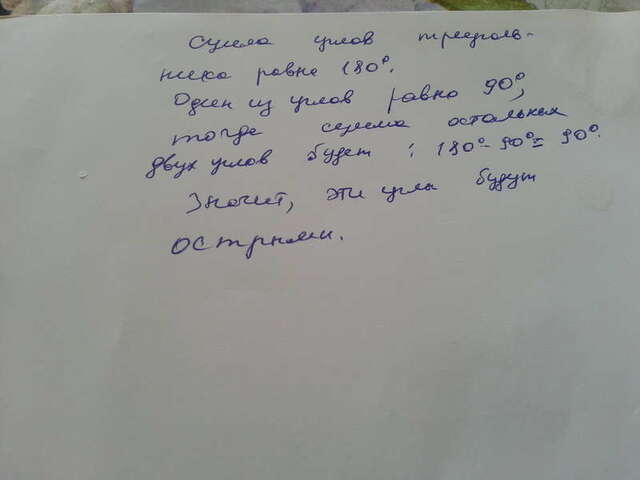 Сумма углов треуголь-
ника равна 180°.
Один из углов равно 90°,
тогда сумма остальных
двух углов будет : 180° - 90° = 90°.
Значит, эти углы будут
острыми.